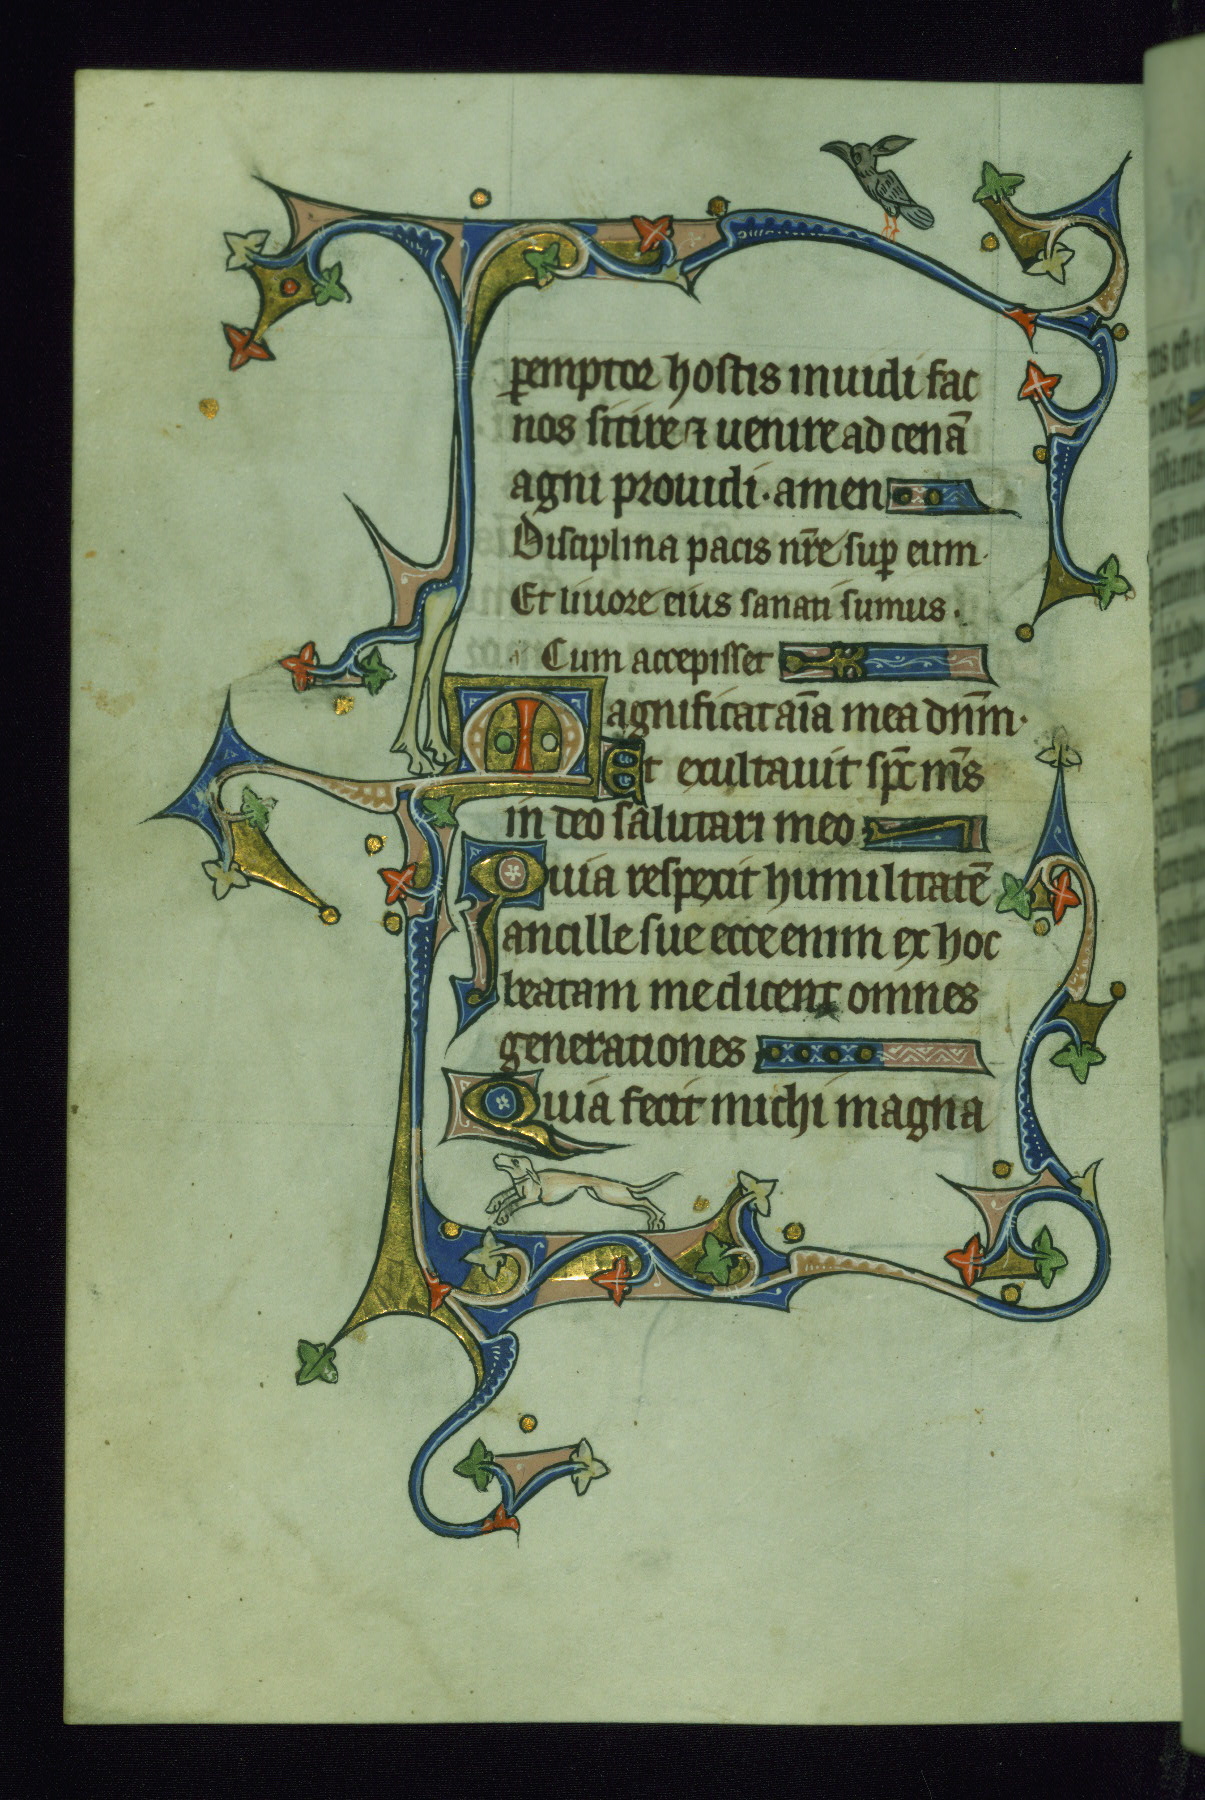 ꝑemptor hostis inuidi fac
nos sitire ⁊ uenire ad cenā
agni prouidi. amen
Disciplina pacis nr̄e suꝑ eum.
Et liuore eius sanati sumus.
Cum accepisset
Magnificat aīa mea dn̄m.
Et exultauit sp̄c m̄s
in deo salutari meo
Quia respexit humilitatē
ancille sue ecce enim ex hoc
beatam me dicent omnes
generationes
Quia fecit michi magna